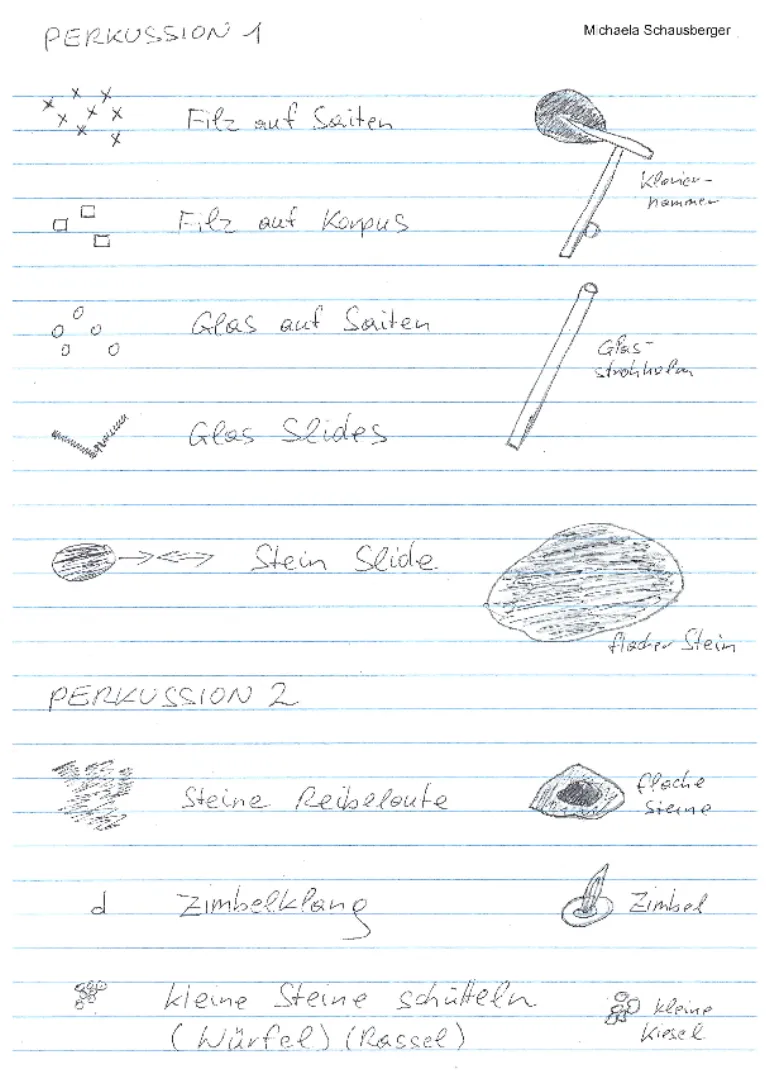 PERKUSSION 1
Michaela Schausberger
Filz auf Saiten
Klavier-
hammer
Filz auf Korpus
Glas auf Saiten
Glas-
strohhalm
Glas Slides
Stein Slide
flacher Stein
PERKUSSION 2
Steine Reibelaute
flache
Steine
d Zimbelklang
Zimbel
kleine Steine schütteln
(Würfel) (Rassel)
kleine
Kiesel